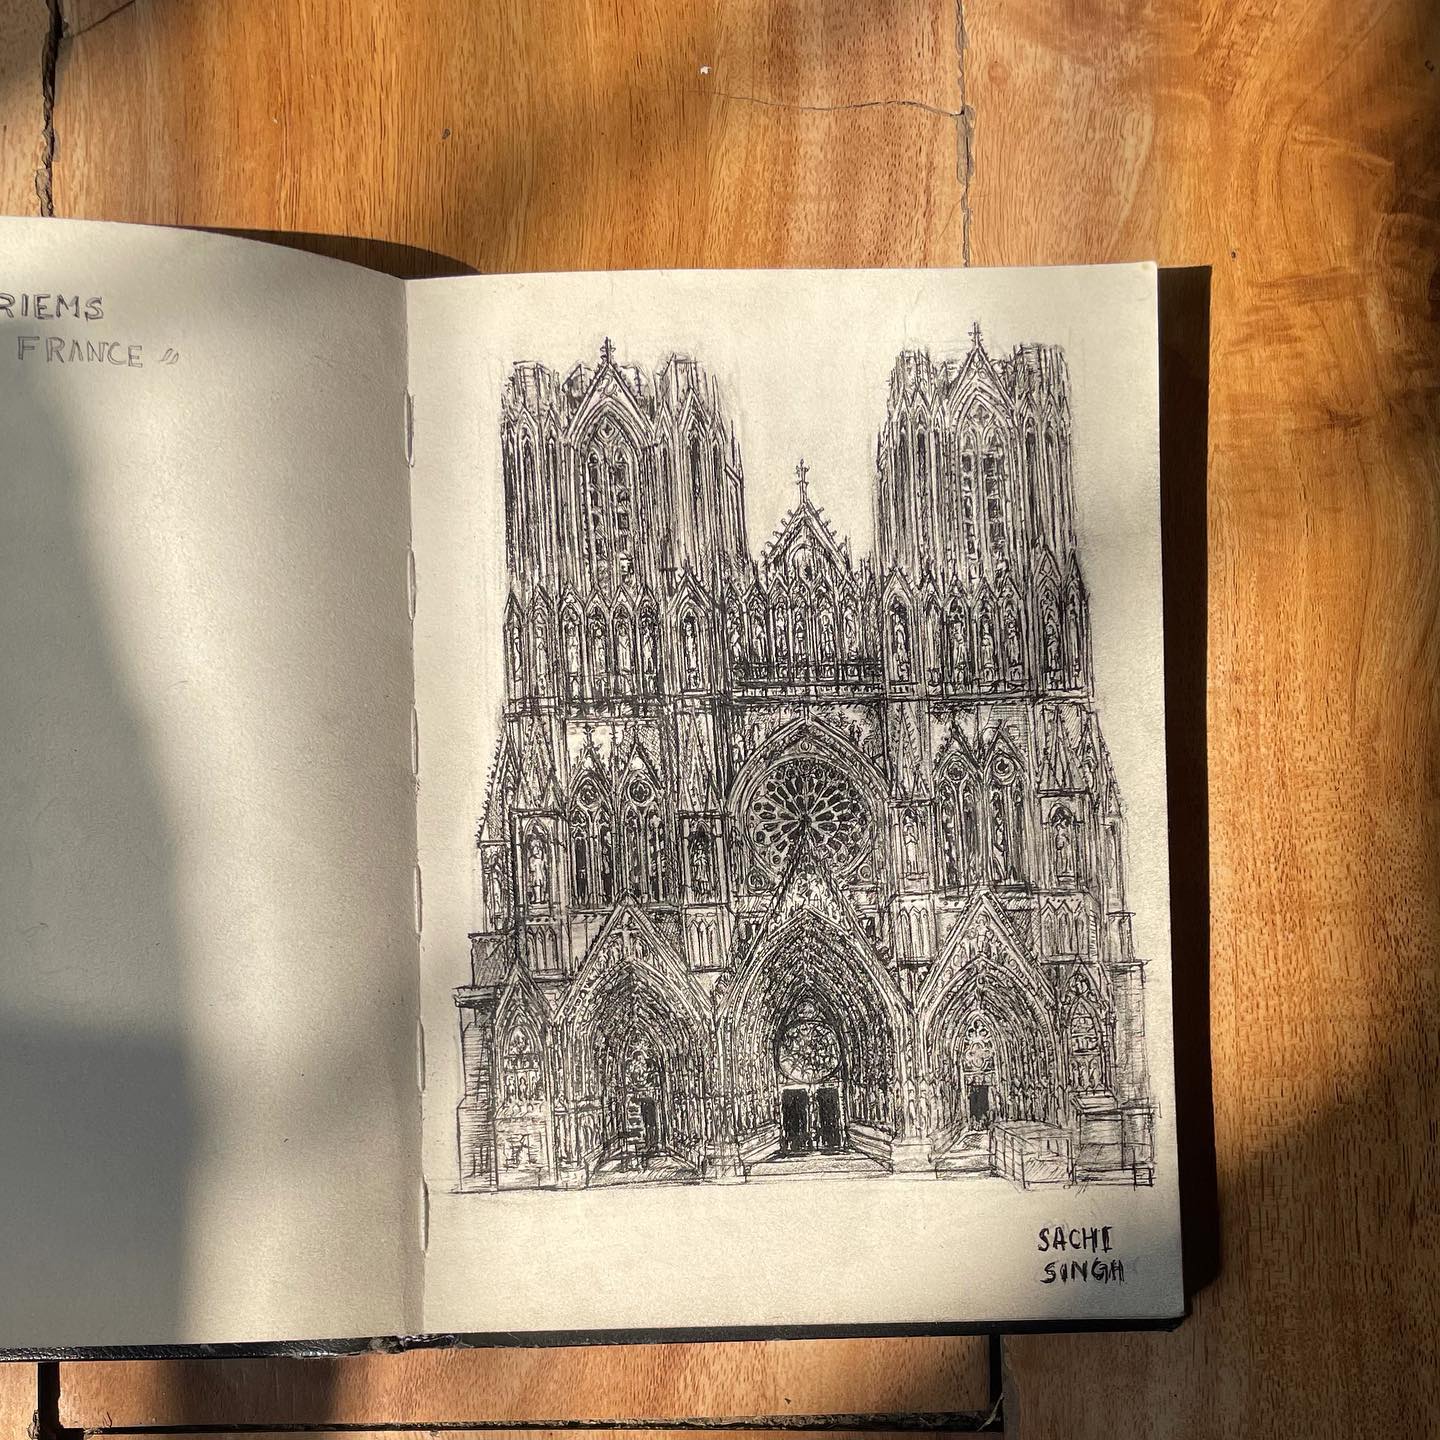 RIEMS
FRANCE "
SACHI
SINGH